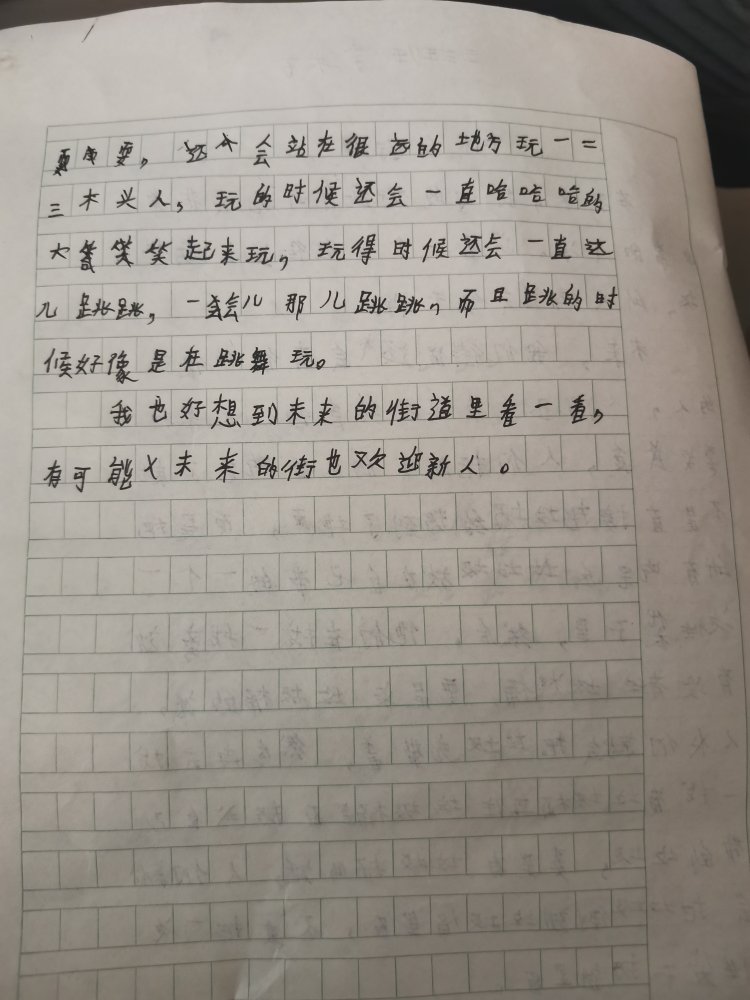 要，还会站在很远的地方玩一二
三木头人，玩的时候还会一直哈哈哈的
大笑笑起来玩，玩得时候还会一直这
儿跳跳，一会儿那儿跳跳，而且跳的时
候好像是在跳舞玩。
我也好想到未来的街道里看一看，
有可能未来的街也欢迎新人。